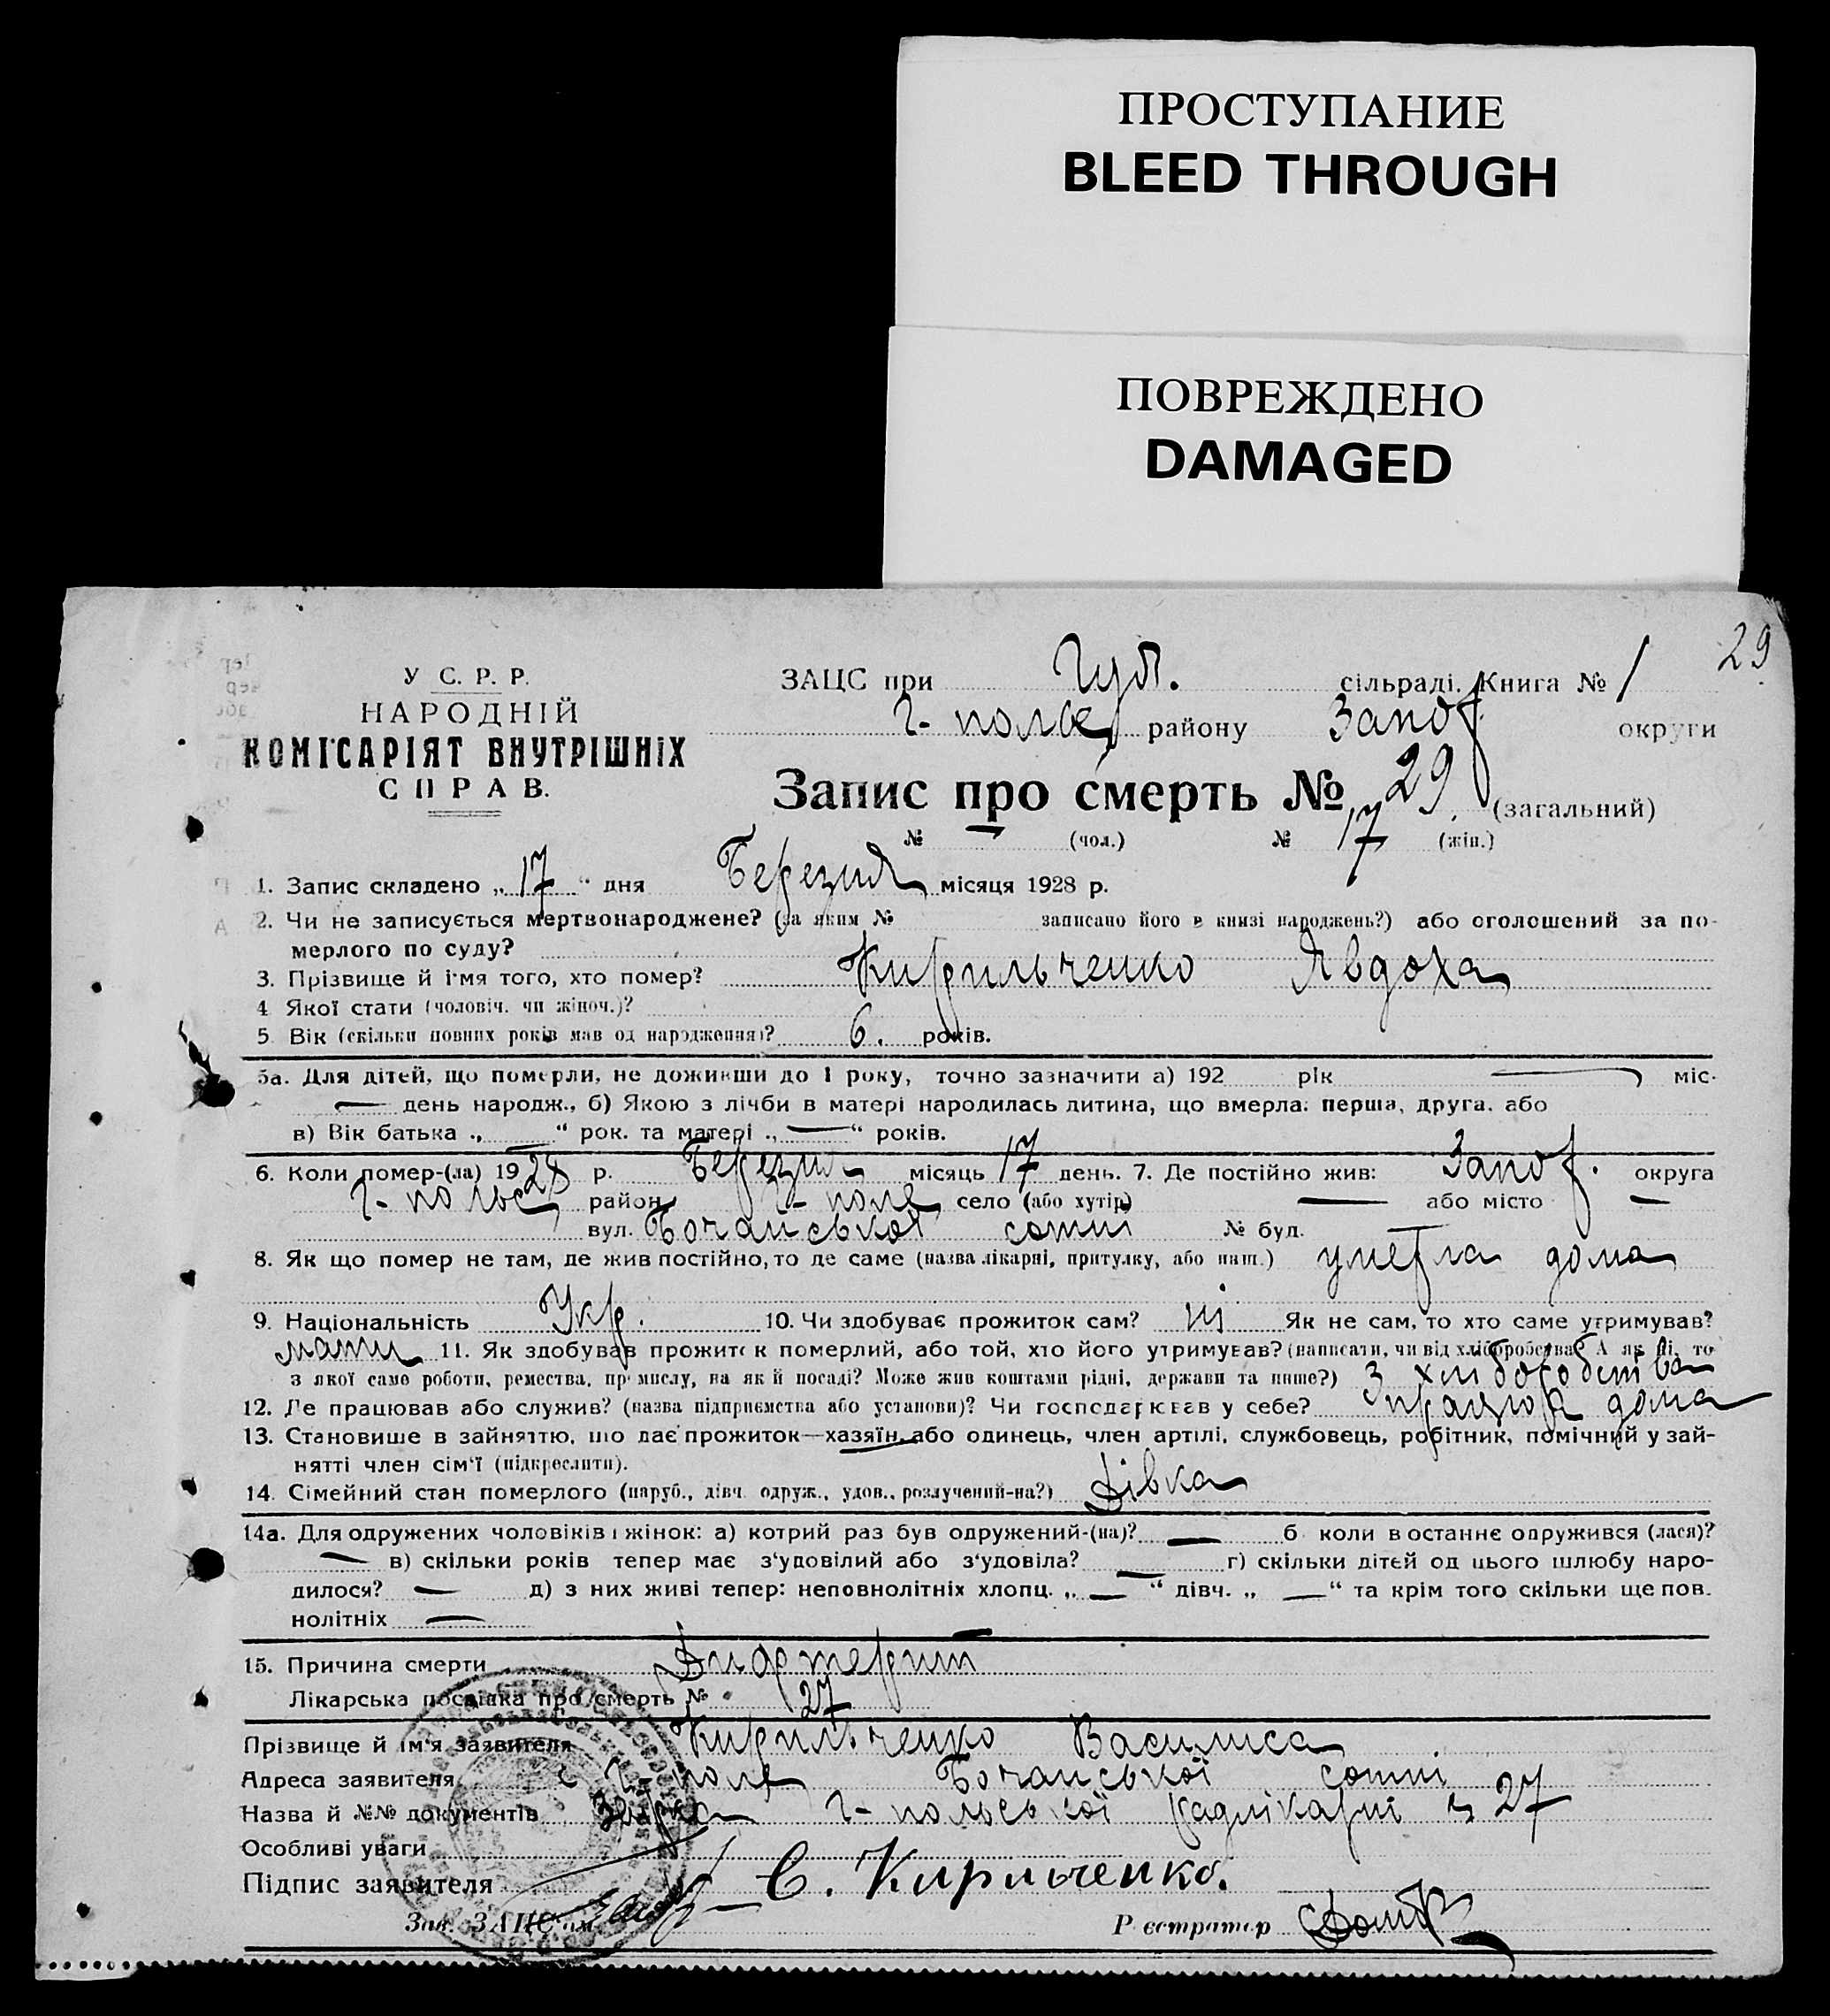 ПРОСТУПАНИЕ
BLEED THROUGH
ПОВРЕЖДЕНО
DAMAGED
29
У С. Р. Р.
НАРОДНІЙ
КОМІСАРІЯТ ВНУТРІШНІХ
СПРАВ.
ЗАЦС при сільраді. Книга № 1
Г-польс району Запор округи
Запис про смерть № 29 (загальний)
№ — (чол.) № 17 (жін.)
1. Запис складено „17“ дня Березня місяця 1928 р.
2. Чи не записується мертвонароджене? (за яким № записано його в книзі народжень?) або оголошений за по-
мерлого по суду?
3. Прізвище й ім'я того, хто помер? Кирильченко Явдоха
4 Якої стати (чоловіч. чи жіноч.)?
5. Вік (скільки повних років мав од народження)? 6. років.
5а. Для дітей, що померли, не доживши до 1 року, точно зазначити а) 192 рік — міс.
— день народж., б) Якою з лічби в матері народилась дитина, що вмерла: перша, друга. або
в) Вік батька „ — “ рок. та матері „ — “ років.
6. Коли помер-(ла) 1928 р. Березня місяць 17 день. 7. Де постійно жив: Запор. округа
Г-польс район Г-поле село (або хутір) — або місто —
вул. Бочанської сотні № буд.
8. Як що помер не там, де жив постійно, то де саме (назва лікарні, притулку, або инш.) умерла дома
9. Національність Укр. 10. Чи здобуває прожиток сам? ні Як не сам, то хто саме утримував?
мати 11. Як здобував прожиток померлий, або той, хто його утримував? (написати, чи від хліборобства? А як ні, то
з якої саме роботи, ремества, промислу, на якій посаді? Може жив коштами рідні, держави та инше?) З хліборобства
12. Де працював або служив? (назва підприємства або установи)? Чи господарював у себе? працюва дома
13. Становище в зайняттю, що дає прожиток—хазяїн, або одинець, член артілі, службовець, робітник, помічний у зай-
нятті член сім'ї (підкреслити).
14. Сімейний стан померлого (паруб., дівч. одруж., удов., розлучений-на?) Дівка
14а. Для одружених чоловіків і жінок: а) котрий раз був одружений-(на)? — б коли в останнє одружився (лася)?
— в) скільки років тепер має з'удовілий або з'удовіла? — г) скільки дітей од цього шлюбу наро-
дилося? — д) з них живі тепер: неповнолітніх хлопц. „ — “ дівч. „ — “ та крім того скільки ще пов.
нолітніх —
15. Причина смерти Дифтерит
Лікарська посвідка про смерть № 27
Прізвище й ім'я заявителя Кирильченко Василиса
Адреса заявителя с Г-поле Бочанської сотні
Назва й №№ документів Г-польської райлікарні 27
Особливі уваги
Підпис заявителя С. Кирльченко.
Зав. ЗАЦС'ом
Реєстратор